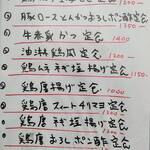 豚ロースとんかつおろしポン酢定食
1200
牛巻カツ定食
1400
油淋鶏風定食
1200
鶏もも ネギ塩揚げ定食
1150
鶏唐 ネギ塩揚げ定食
鶏唐 スイートチリマヨ定食
1200
鶏唐 おろしポン酢定食
1200